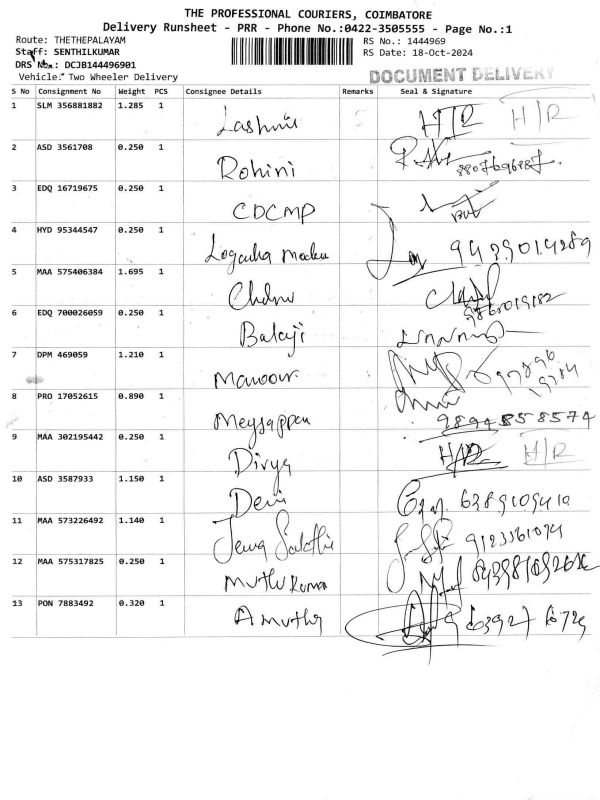 THE PROFESSIONAL COURIERS, COIMBATORE
Delivery Runsheet - PRR - Phone No.:0422-3505555 - Page No.:1
Route: THETHEPALAYAM RS No.: 1444969
Staff: SENTHILKUMAR RS Date: 18-Oct-2024
DRS No.: DCJB144496901
Vehicle: Two Wheeler Delivery DOCUMENT DELIVERY
S No Consignment No Weight PCS Consignee Details Remarks Seal & Signature
1 SLM 356881882 1.285 1 H/R H/R
2 ASD 3561708 0.250 1 Rohini
3 EDQ 16719675 0.250 1 CDCMP
4 HYD 95344547 0.250 1
5 MAA 575406384 1.695 1
6 EDQ 700026059 0.250 1 Balaji
7 DPM 469059 1.210 1
8 PRO 17052615 0.890 1 Meyyappan 9894858574
9 MAA 302195442 0.250 1 Divya H/R H/R
10 ASD 3587933 1.150 1 Devi
11 MAA 573226492 1.140 1
12 MAA 575317825 0.250 1 Muthu Kumar
13 PON 7883492 0.320 1 Amutha